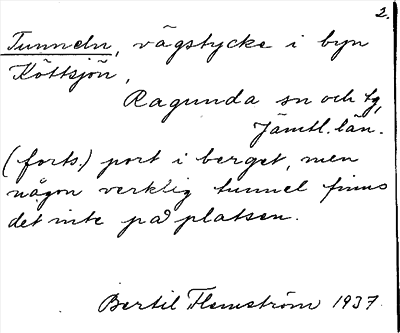 2.
Tunneln, vägstycke i byn
Köttsjön,
Ragunda sn och tg,
Jämtl. län.
(forts.) port i berget, men
någon verklig tunnel finns
det inte på platsen.
Bertil Flemström 1937.